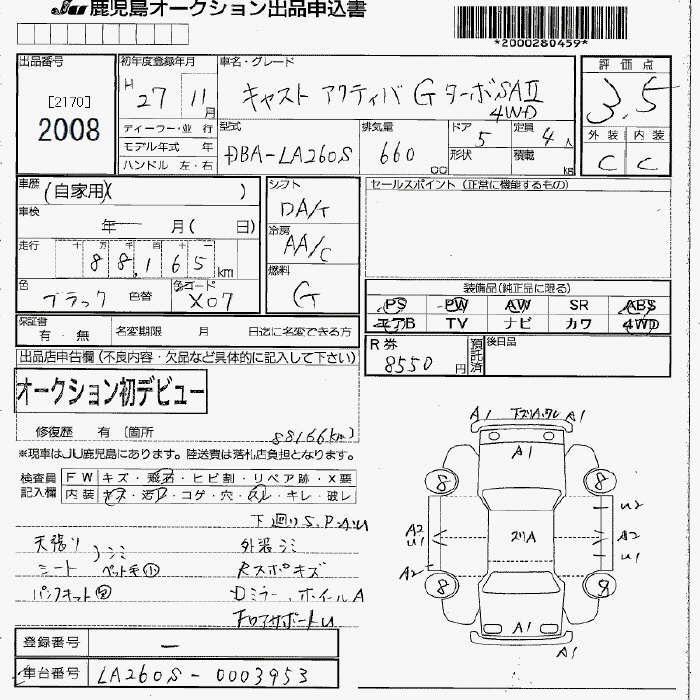 JU 鹿児島オークション出品申込書
*2000280459*
出品番号
[2170]
2008
初年度登録年月
H 27 11月
ディーラー・並行
モデル年式 年
ハンドル 左・右
車名・グレード
キャスト アクティバ G ターボSAⅡ
4WD
型式
DBA-LA260S
排気量
660
cc
ドア
5
形状
定員
4人
積載
kg
評価点
3.5
外装 内装
C C
車歴
(自家用)( )
車検
年 月( 日)
走行
十 万 千 百 十 一
88,165 km
色
ブラック 色替
色コード
X07
シフト
DA/T
冷房
AA/C
燃料
G
セールスポイント (正常に機能するもの)
装備品(純正品に限る)
PS PW AW SR ABS
エアB TV ナビ カワ 4WD
保証書
有・無
名変期限 月 日迄に名変できる方
R券
8550円
預託済
後日品
出品店申告欄(不良内容・欠品など具体的に記入して下さい)
オークション初デビュー
修復歴 有 (箇所
88166km)
※現車はJU鹿児島にあります。陸送費は落札店負担となります。
検査員
記入欄
FW キズ・飛石・ヒビ割・リペア跡・X要
内装 キズ・汚レ・コゲ・穴・スレ・キレ・破レ
下廻りS.P.A.U
天張り
シミ
外装シミ
シート ペット毛小
Rスポキズ
パンクキット
Dミラー、ホイルA
FロアサポートU
登録番号
—
車台番号 LA260S-0003953
A1 下ズリA,ワレ A1
A1
8 8
U2
A2
U1
ズリA
A2
U1
A2
8 8
A1
A1